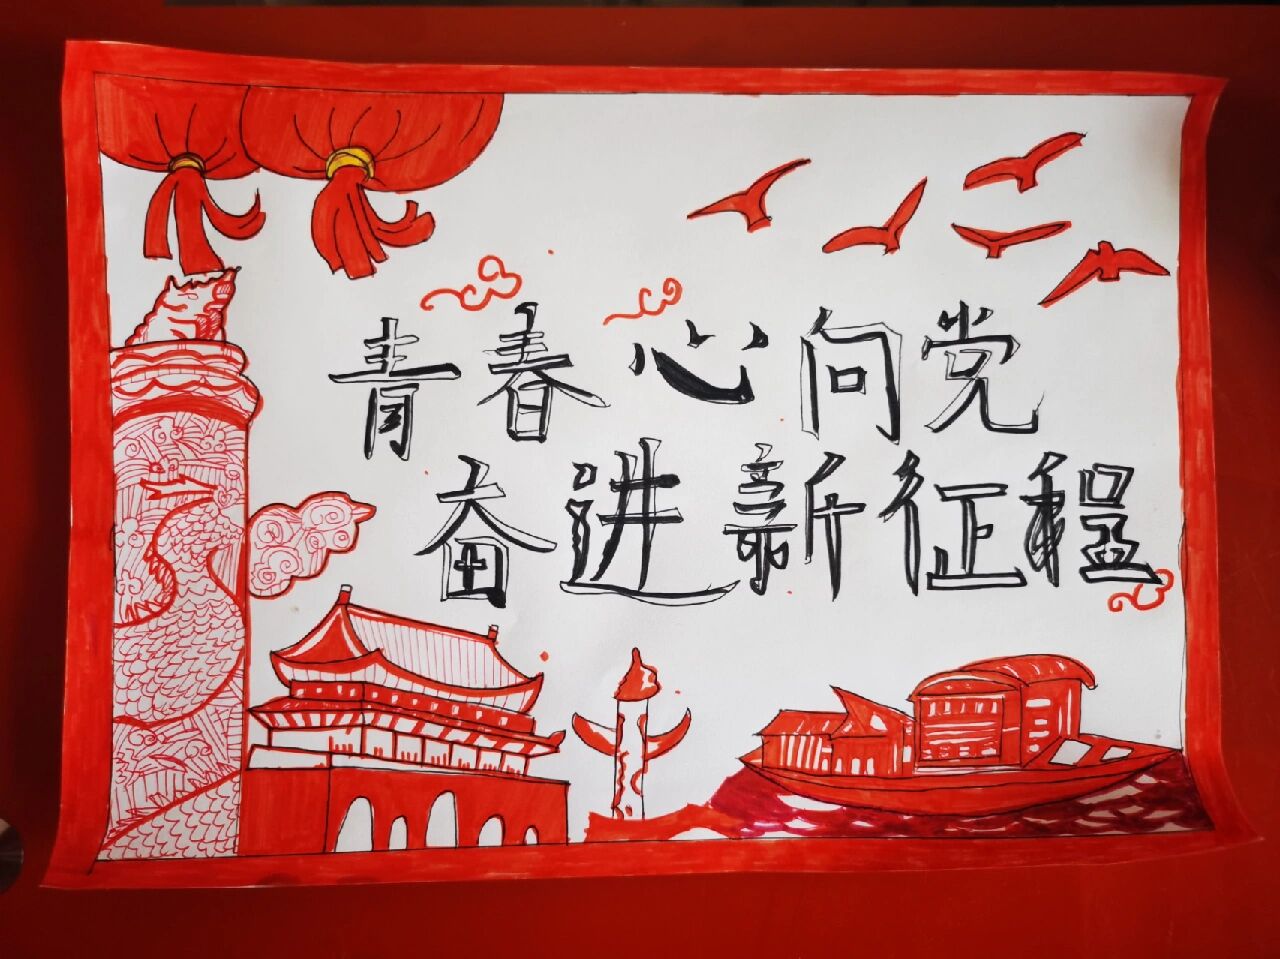 青春心向党
奋进新征程